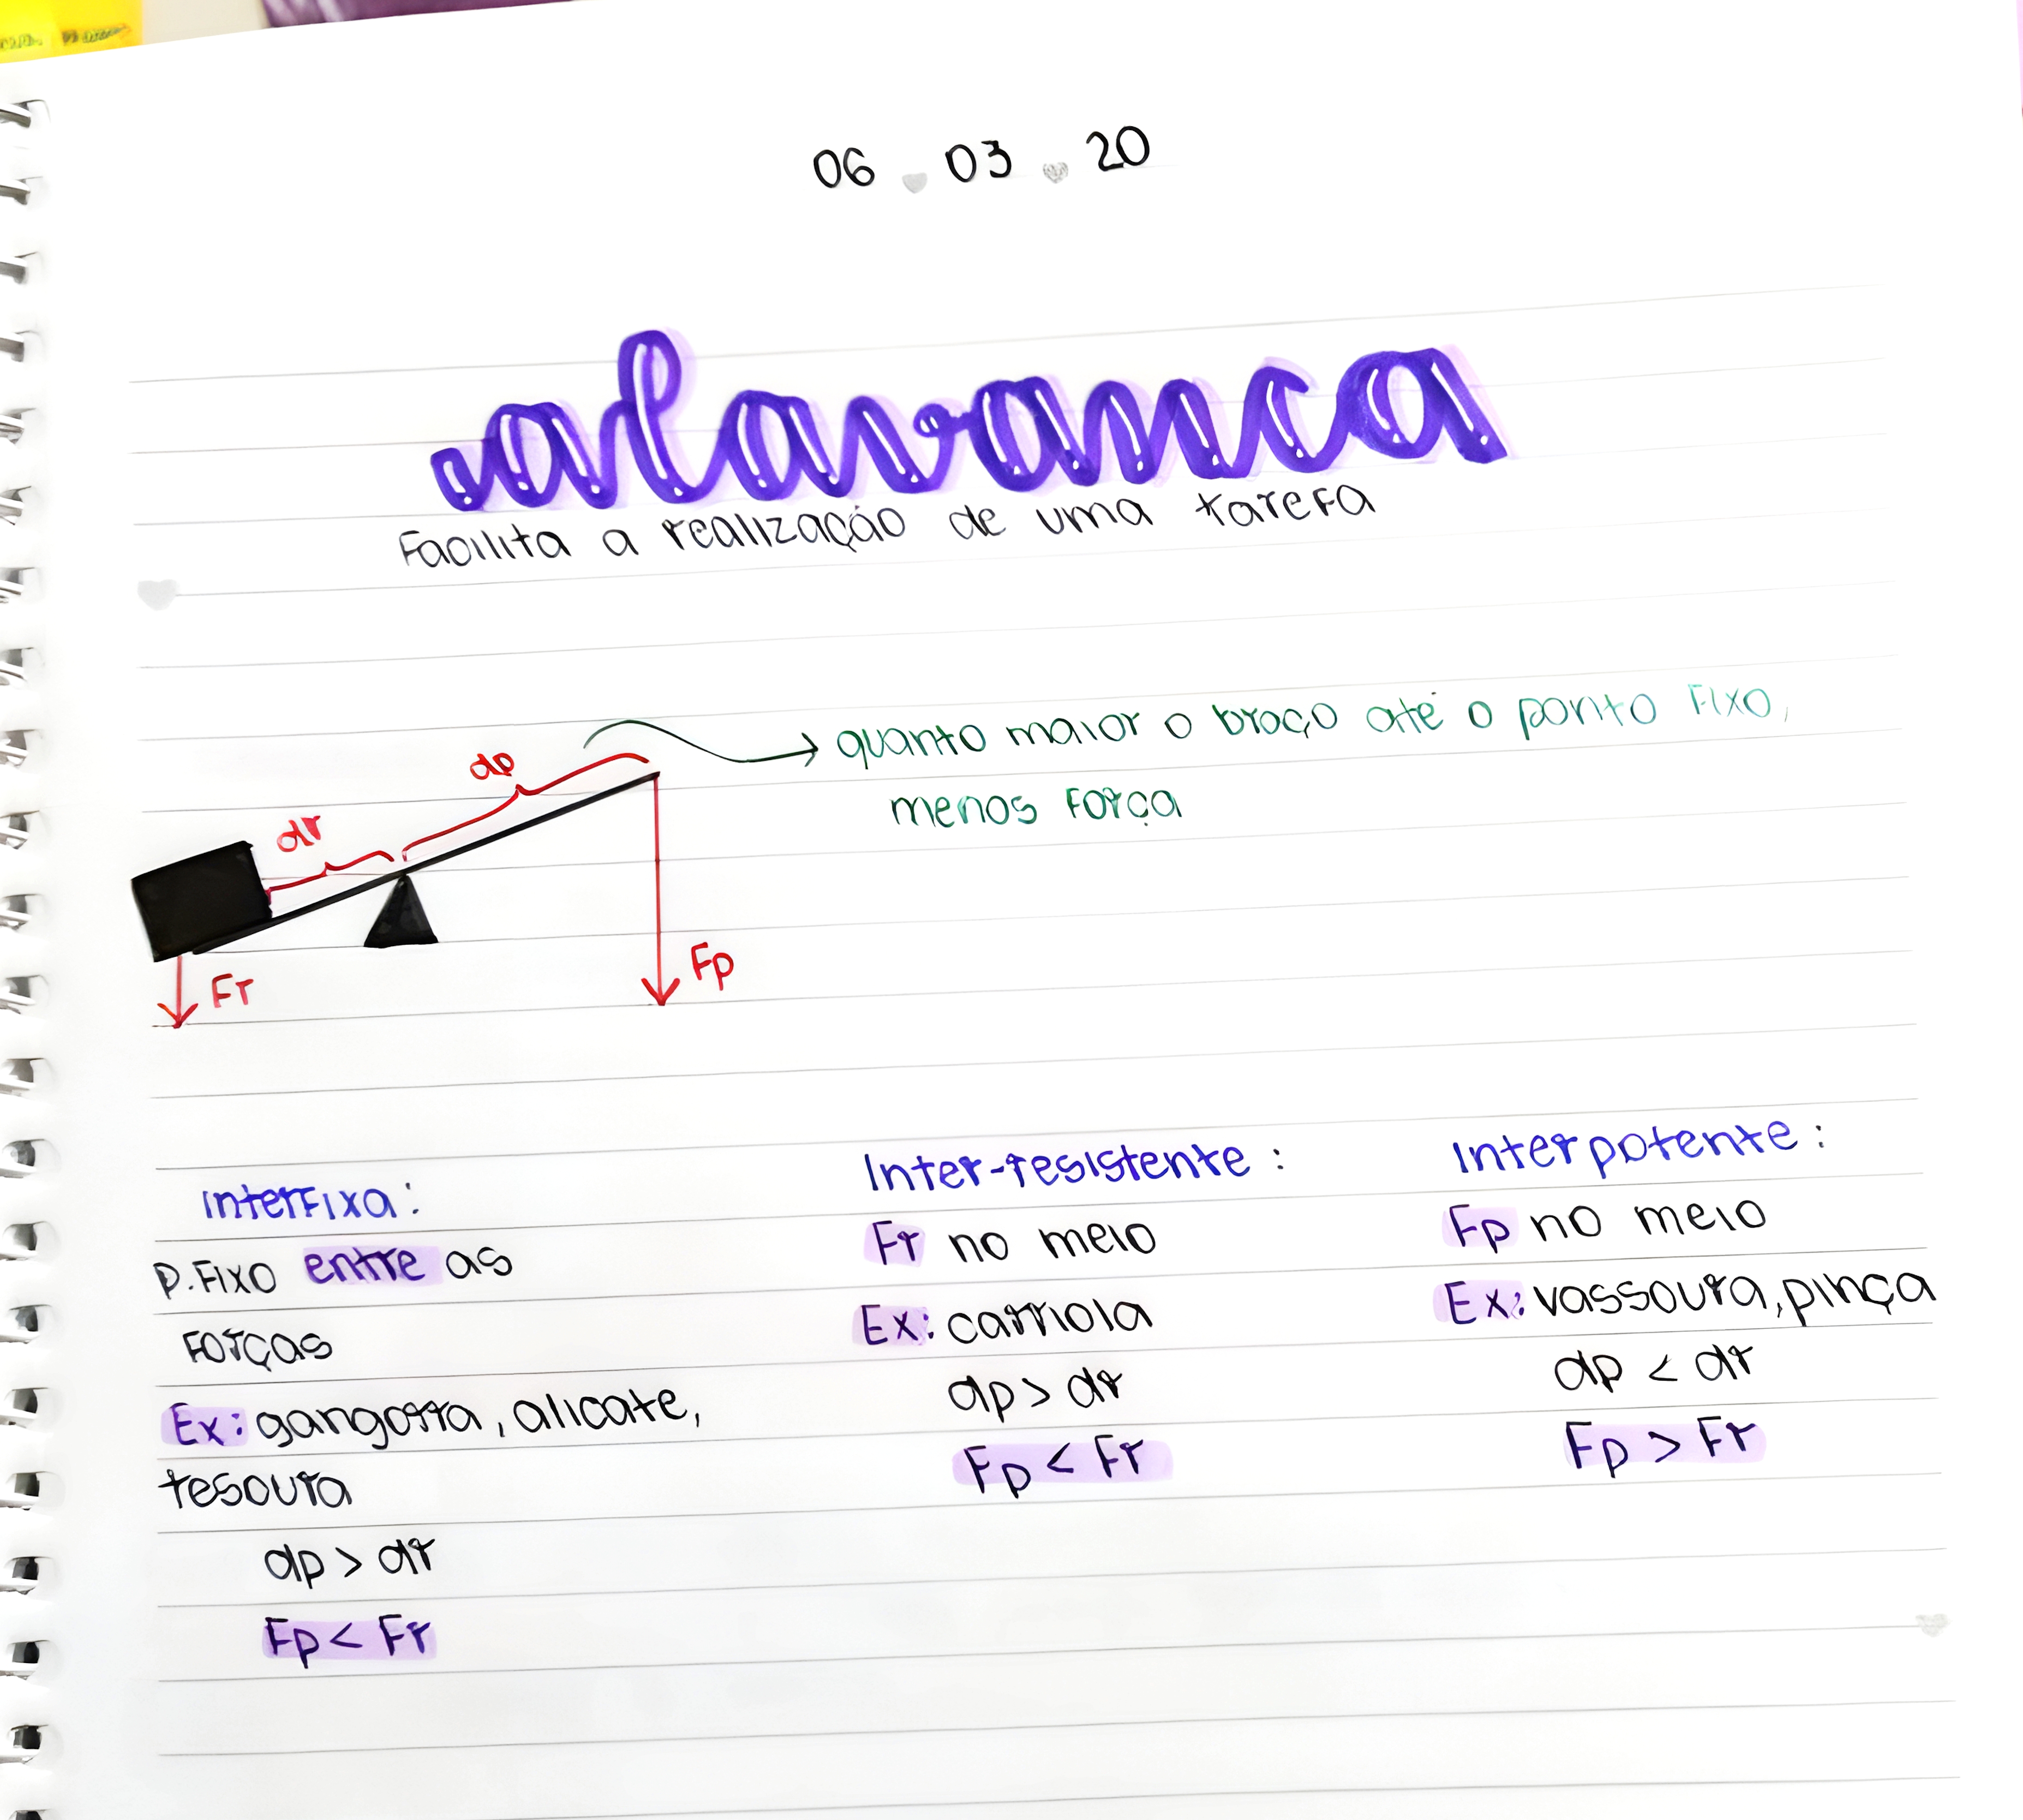 06 . 03 . 20
alavanca
Facilita a realização de uma tarefa
quanto maior o braço até o ponto Fixo,
menos Força
dp
dr
Fr
Fp
InterFixa:
P.Fixo entre as
Forças
Ex: gangorra, alicate,
tesoura
dp > dr
Fp < Fr
Inter-resistente :
Fr no meio
Ex: carriola
dp > dr
Fp < Fr
Interpotente :
Fp no meio
Ex: vassoura, pinça
dp < dr
Fp > Fr